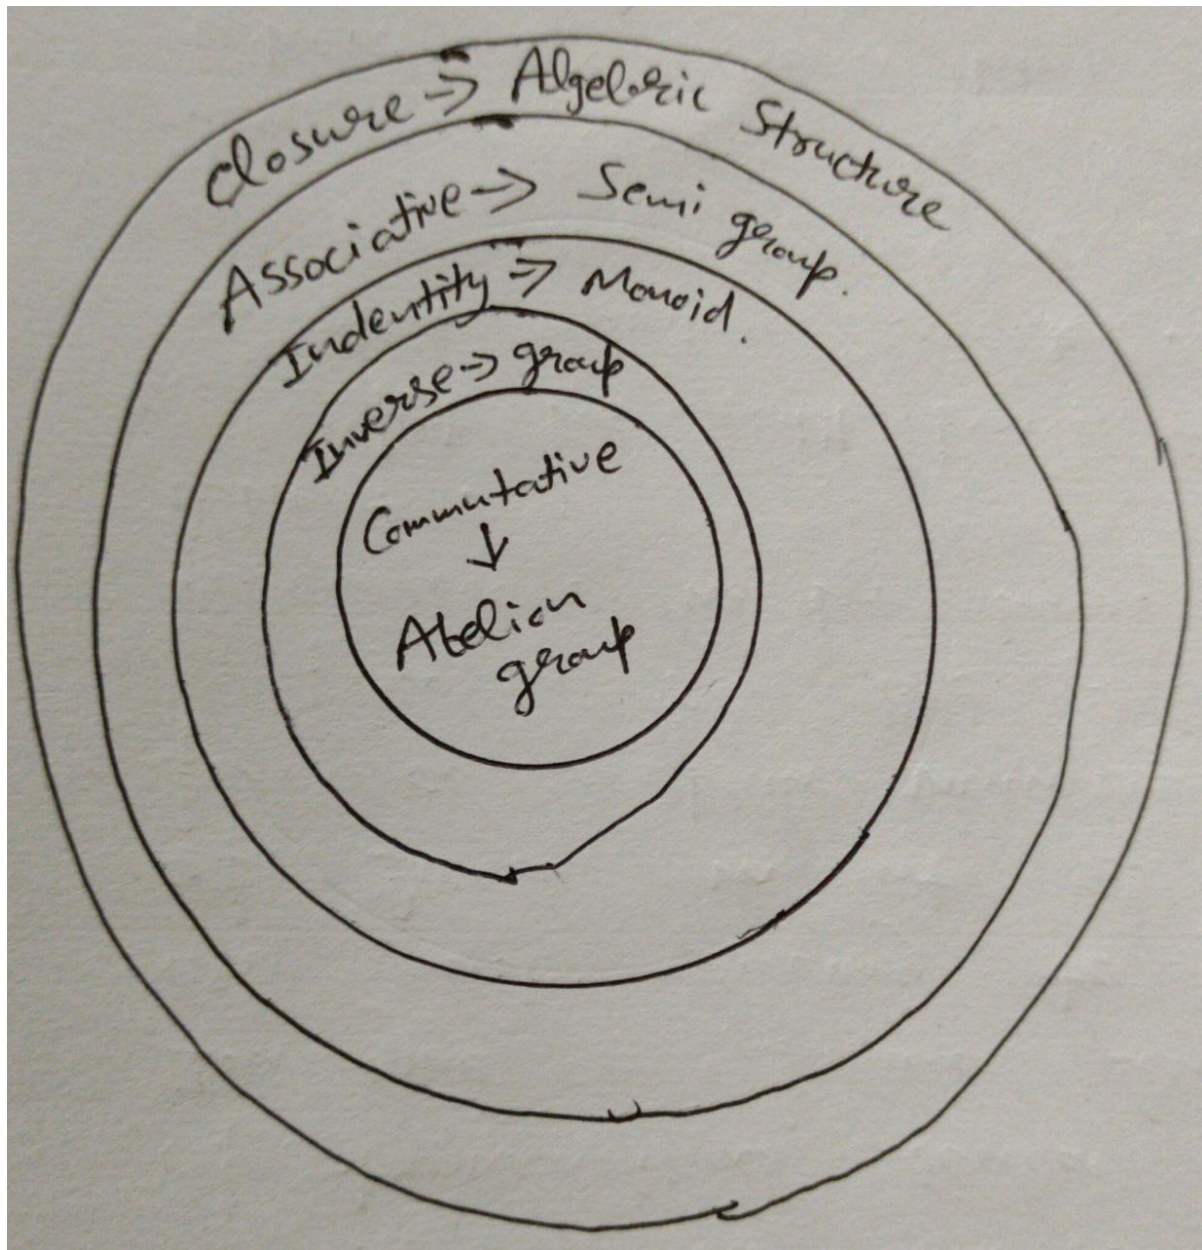 Closure → Algebric Structure
Associative → Semi group.
Indentity → Monoid.
Inverse → group
Commutative
↓
Abelian
group